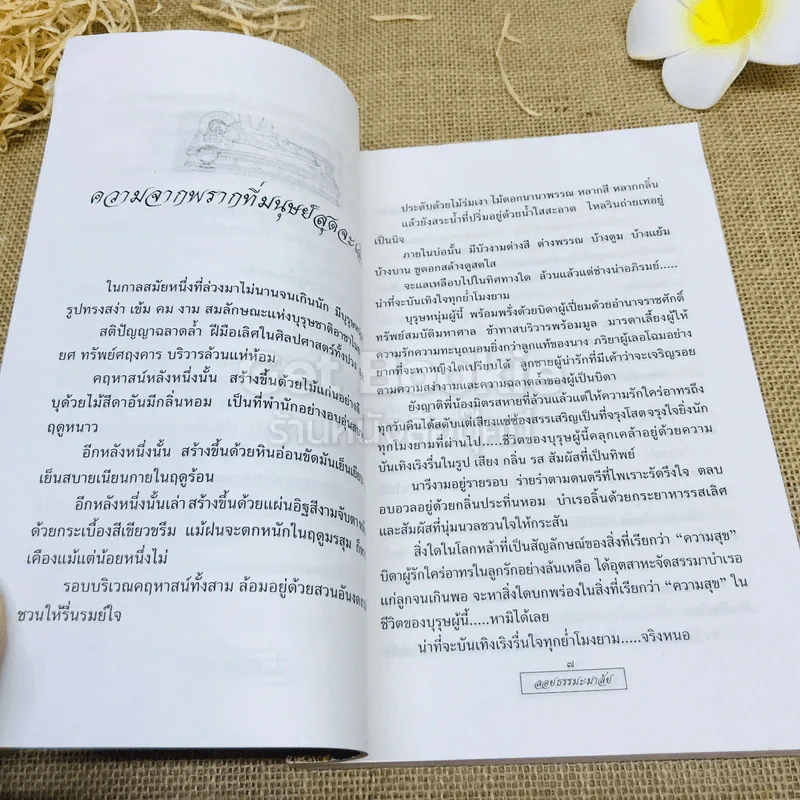 ความจากพรากที่มนุษย์สุดจะ
ในกาลสมัยหนึ่งที่ล่วงมาไม่นานจนเกินนัก มีบุรุษ
รูปทรงสง่า เข้ม คม งาม สมลักษณะแห่งบุรุษชาติอาชาไนย
สติปัญญาฉลาดล้ำ ฝีมือเลิศในศิลปศาสตร์ทั้งปวง
ยศ ทรัพย์ศฤงคาร บริวารล้วนแห่ห้อม
คฤหาสน์หลังหนึ่งนั้น สร้างขึ้นด้วยไม้แก่นอย่างดี
บุด้วยไม้สีดาอันมีกลิ่นหอม เป็นที่พำนักอย่างอบอุ่นสบาย
ฤดูหนาว
อีกหลังหนึ่งนั้น สร้างขึ้นด้วยหินอ่อนขัดมันเย็นเฉียบ
เย็นสบายเนียนกายในฤดูร้อน
อีกหลังหนึ่งนั้นเล่า สร้างขึ้นด้วยแผ่นอิฐสีงามจับตา
ด้วยกระเบื้องสีเขียวขรึม แม้ฝนจะตกหนักในฤดูมรสุม
เคืองแม้แต่น้อยหนึ่งไม่
รอบบริเวณคฤหาสน์ทั้งสาม ล้อมอยู่ด้วยสวนอัน
ชวนให้รื่นรมย์ใจ
ประดับด้วยไม้ร่มเงา ไม้ดอกนานาพรรณ หลากสี หลากกลิ่น
แล้วยังสระน้ำที่ปริ่มอยู่ด้วยน้ำใสสะอาด ไหลรินถ่ายเทอยู่
เป็นนิจ
ภายในบ่อนั้น มีบัวงามต่างสี ต่างพรรณ บ้างตูม บ้างแย้ม
บ้างบาน ชูดอกสล้างดูสดใส
จะแลเหลือบไปในทิศทางใด ล้วนแล้วแต่ช่างน่าอภิรมย์.....
น่าที่จะบันเทิงใจทุกย่ำโมงยาม
บุรุษหนุ่มผู้นี้ พร้อมพรั่งด้วยบิดาผู้เปี่ยมด้วยอำนาจราชศักดิ์
ทรัพย์สมบัติมหาศาล ข้าทาสบริวารพร้อมมูล มารดาเลี้ยงผู้ให้
ความรักความทะนุถนอมยิ่งกว่าลูกแท้ของนาง ภริยาผู้เลอโฉมอย่าง
ยากที่จะหาหญิงใดเปรียบได้ ลูกชายผู้น่ารักที่มีเค้าว่าจะเจริญรอย
ตามความสง่างามและความฉลาดล้ำของผู้เป็นบิดา
ยังญาติพี่น้องมิตรสหายที่ล้วนแล้วแต่ให้ความรักใคร่อาทรถึง
ทุกวันคืนได้สดับแต่เสียงแซ่ซ้องสรรเสริญเป็นที่จรุงโสตจรุงใจยิ่งนัก
ทุกโมงยามที่ผ่านไป.....ชีวิตของบุรุษผู้นี้คลุกเคล้าอยู่ด้วยความ
บันเทิงเริงรื่นในรูป เสียง กลิ่น รส สัมผัสที่เป็นทิพย์
นารีงามอยู่รายรอบ ร่ายรำตามดนตรีที่ไพเราะรัดรึงใจ ตลบ
อบอวลอยู่ด้วยกลิ่นประทิ่นหอม บำเรอลิ้นด้วยกระยาหารรสเลิศ
และสัมผัสที่นุ่มนวลชวนใจให้กระสัน
สิ่งใดในโลกหล้าที่เป็นสัญลักษณ์ของสิ่งที่เรียกว่า “ความสุข”
บิดาผู้รักใคร่อาทรในลูกรักอย่างล้นเหลือ ได้อุตสาหะจัดสรรมาบำเรอ
แก่ลูกจนเกินพอ จะหาสิ่งใดบกพร่องในสิ่งที่เรียกว่า “ความสุข” ใน
ชีวิตของบุรุษผู้นี้.....หามิได้เลย
น่าที่จะบันเทิงเริงรื่นใจทุกย่ำโมงยาม.....จริงหนอ
๗
ลอยธรรมะมาลัย
Get Bookie
ร้านหนังสือเก็ทบุ๊คกี้